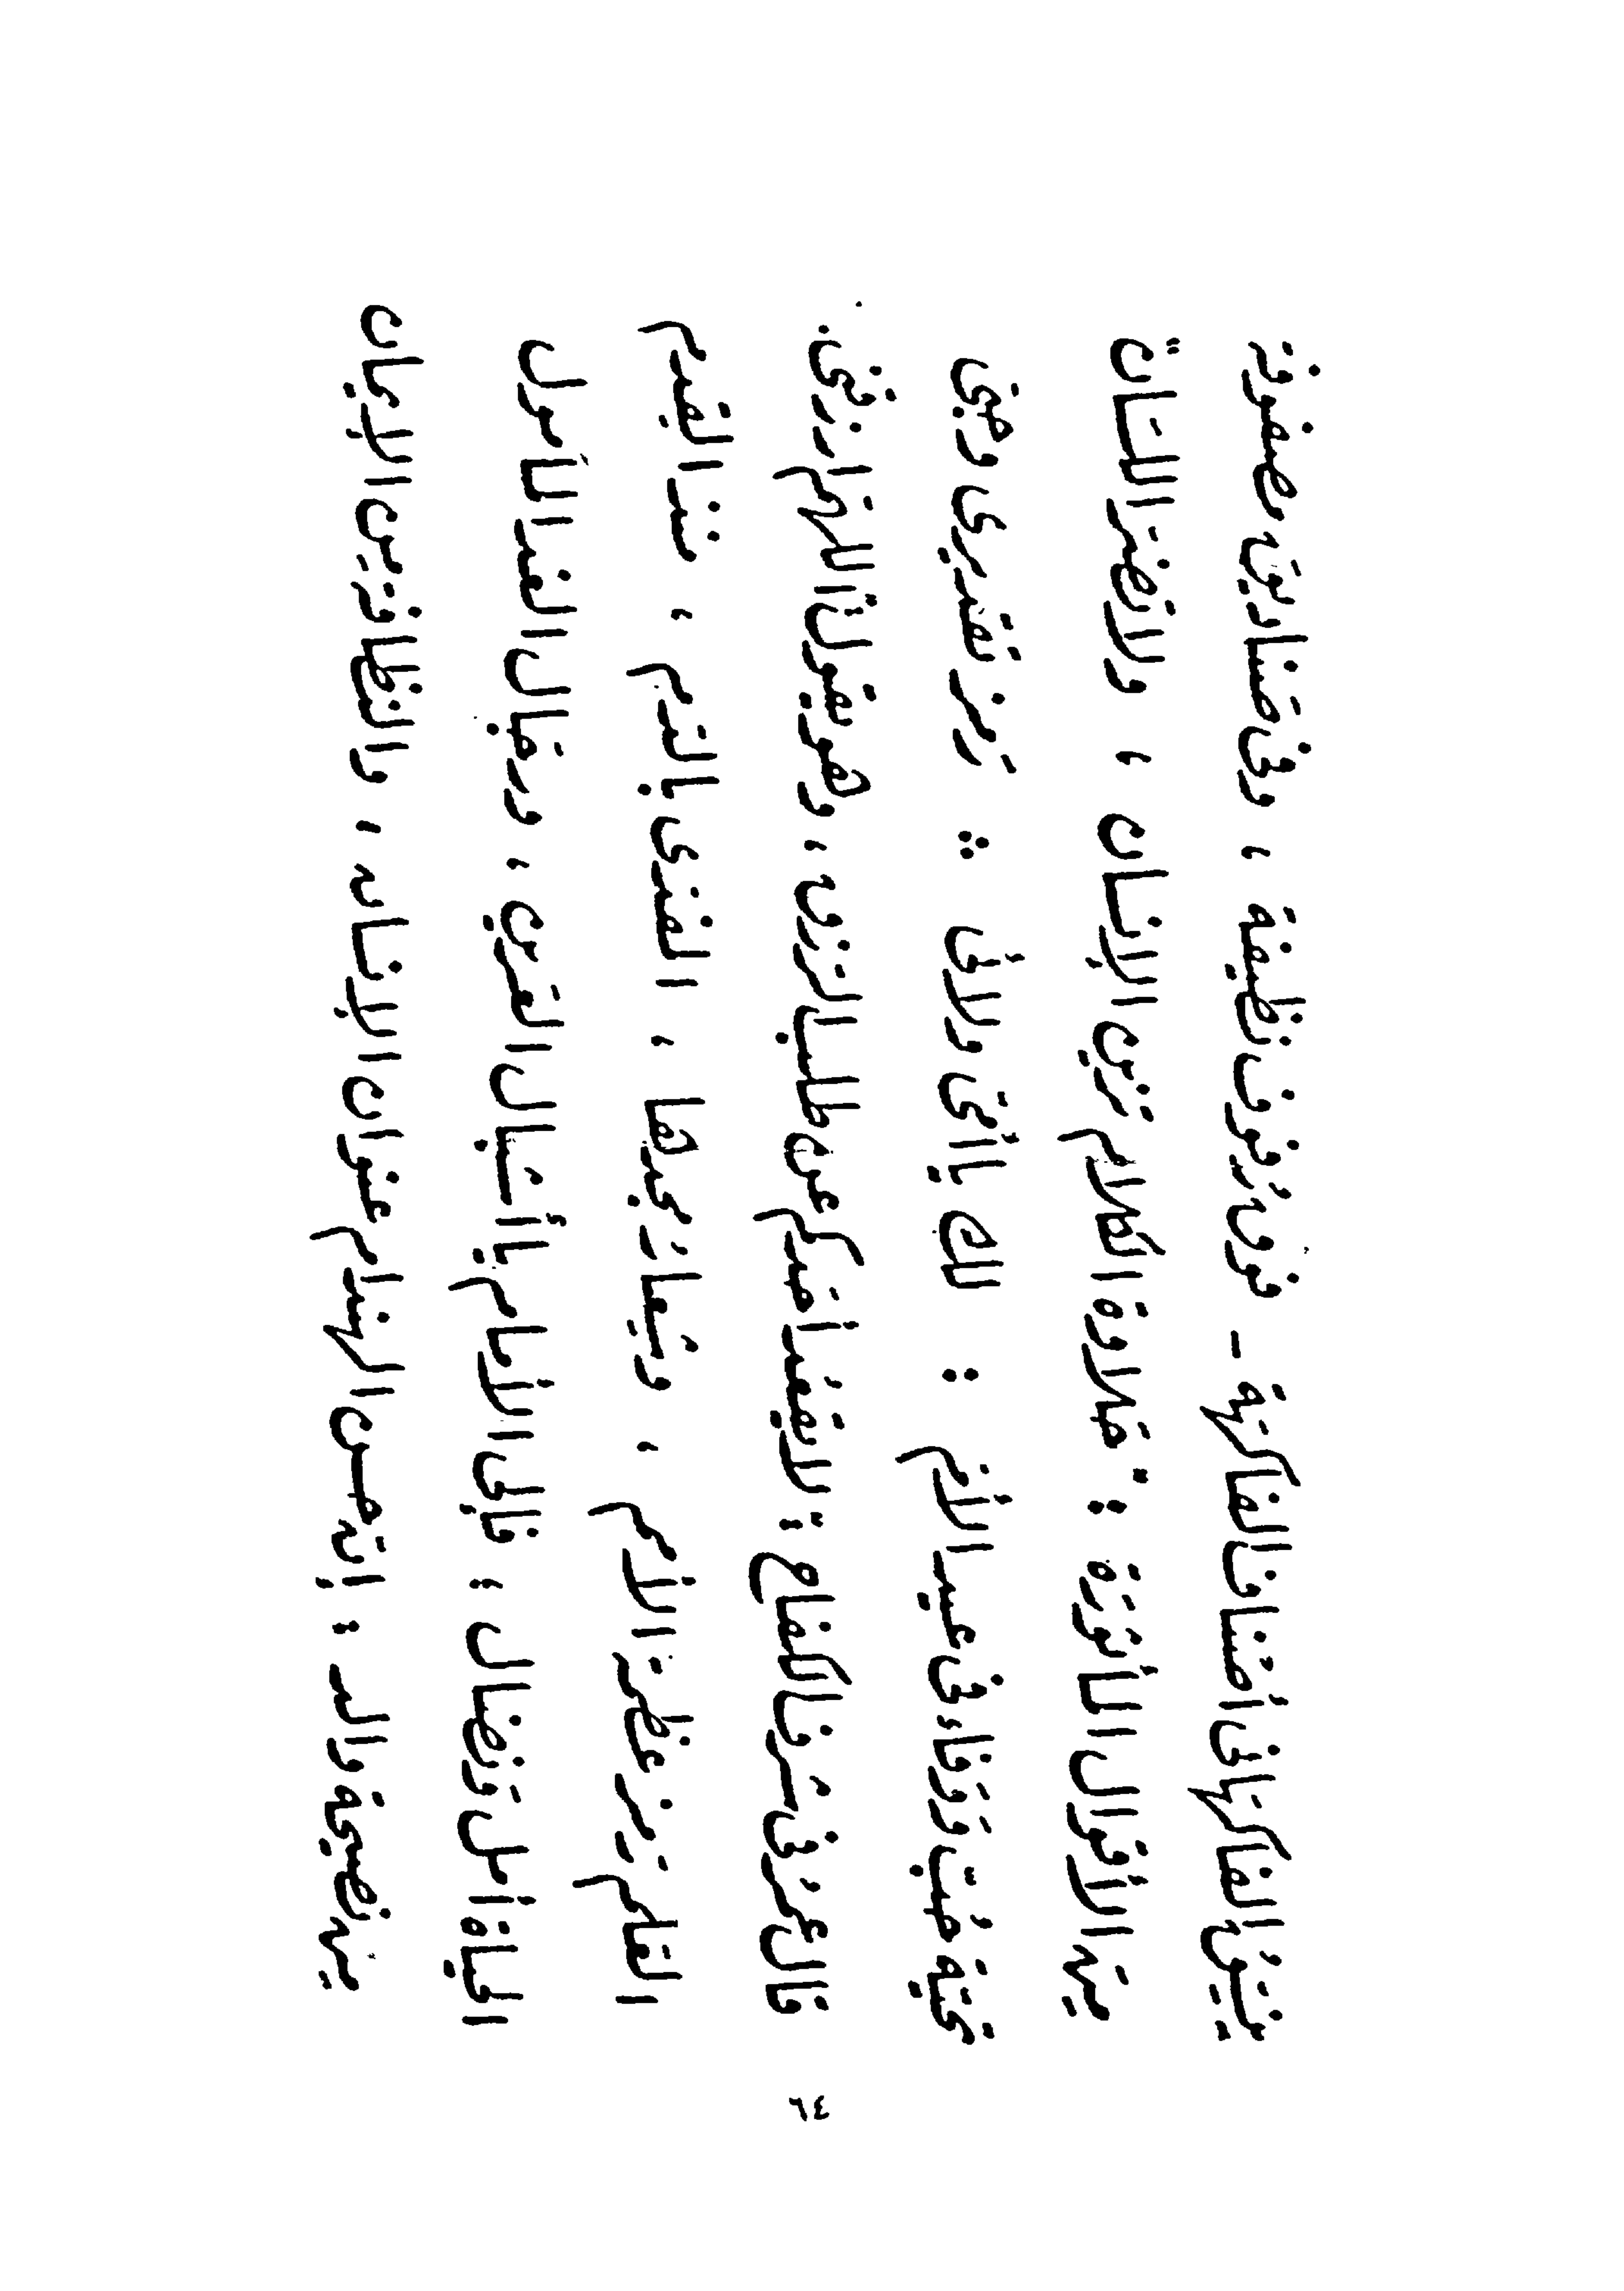 ينسق الفاكهانى أصناف الفاكهة ـ فوق رفوف نظيفة ، وفى صناديق مصفوفة
من الأقوال المأثورة : " حلاوة الكلام تزين الإنسان ، ولا تضر اللسان "
تحية حب ووفاء فى عيد الأم : لك يا أمى ولائى ∴ رمز تقديرى وحبى
قال عمر فى شرف الكفاح : لا يقعد أحدكم عن طلب الرزق ، وهو يقول " اللهم ارزقنى .
العلم رمز عظمة الأمم ، وشعار مجدها ، المفدى بالدم ، منذ القدم
الحياة أمل ونضال ؛ فإلى الأمام يا أشبال العرين ، ورجال الغد المأمول
من نصيحة والد : إن حسن الهندام عنوان الإنسان ، والنظافة من الإيمان